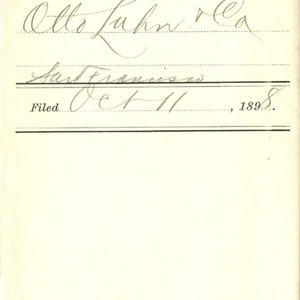 Otto Luhn & Co
San Francisco
Filed Oct 11, 1898.